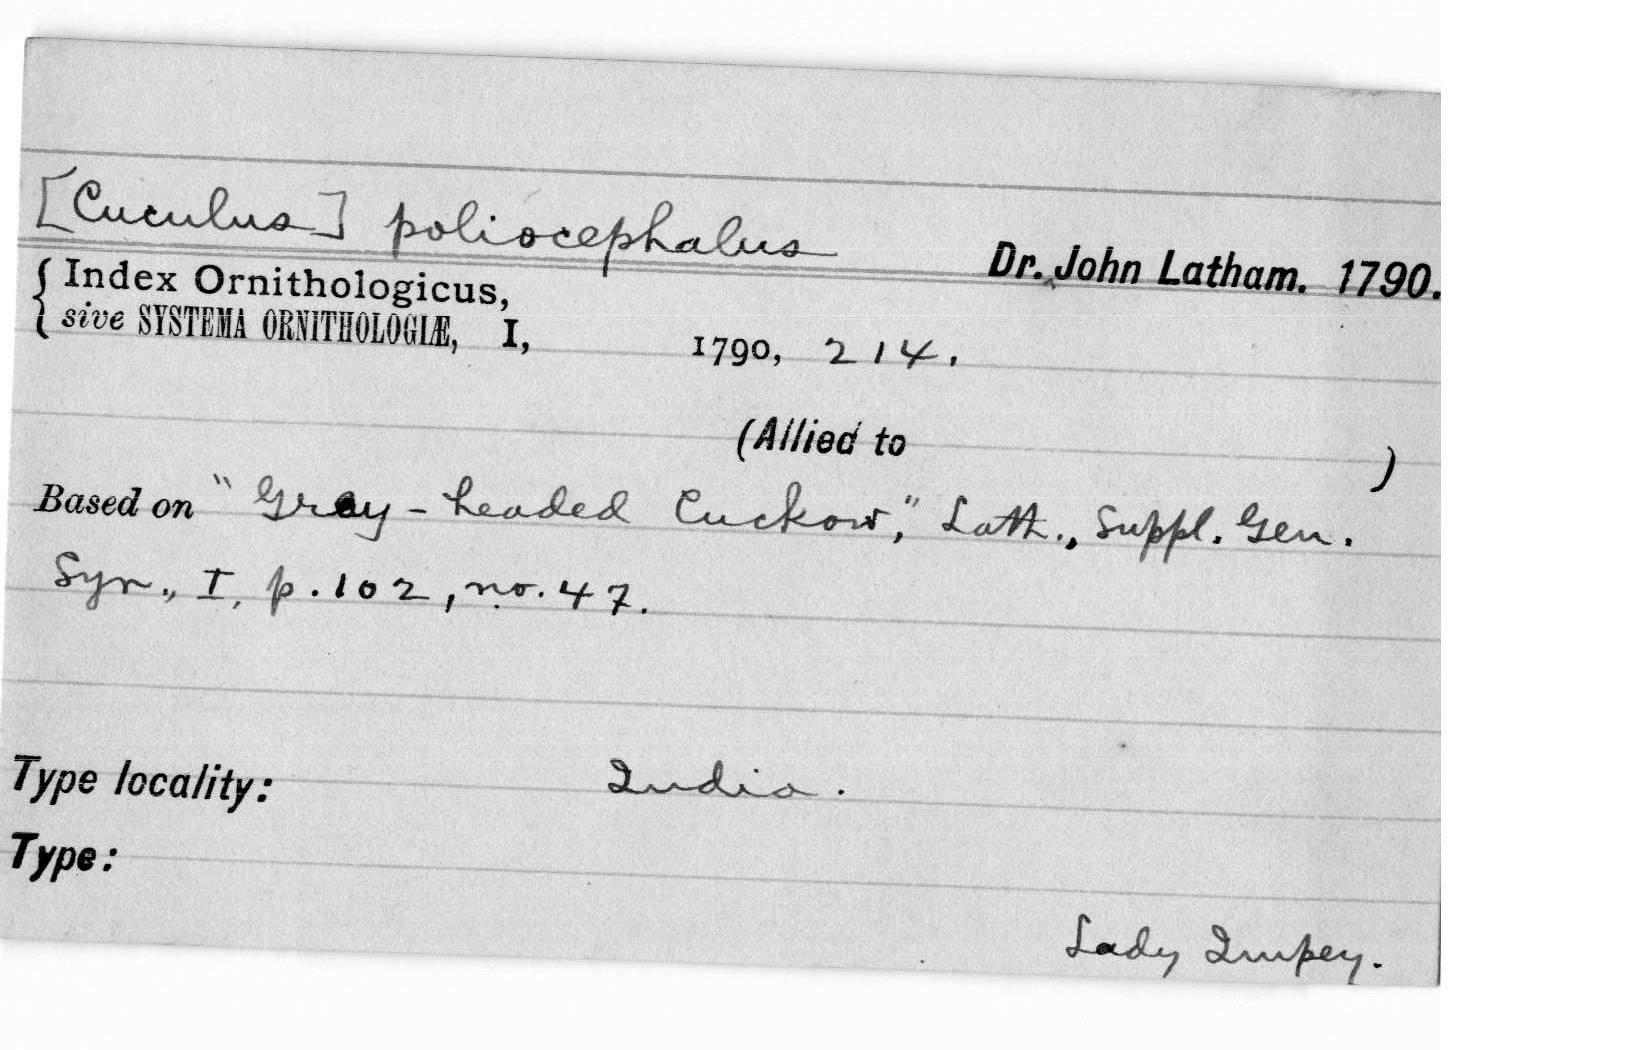 [Cuculus] poliocephalus
Dr. John Latham. 1790.
Index Ornithologicus,
sive SYSTEMA ORNITHOLOGIÆ, I, 1790, 214.
(Allied to )
Based on "Gray-headed Cuckow," Lath., Suppl. Gen.
Syn., I, p. 102, no. 47.
Type locality: India.
Type:
Lady Impey.